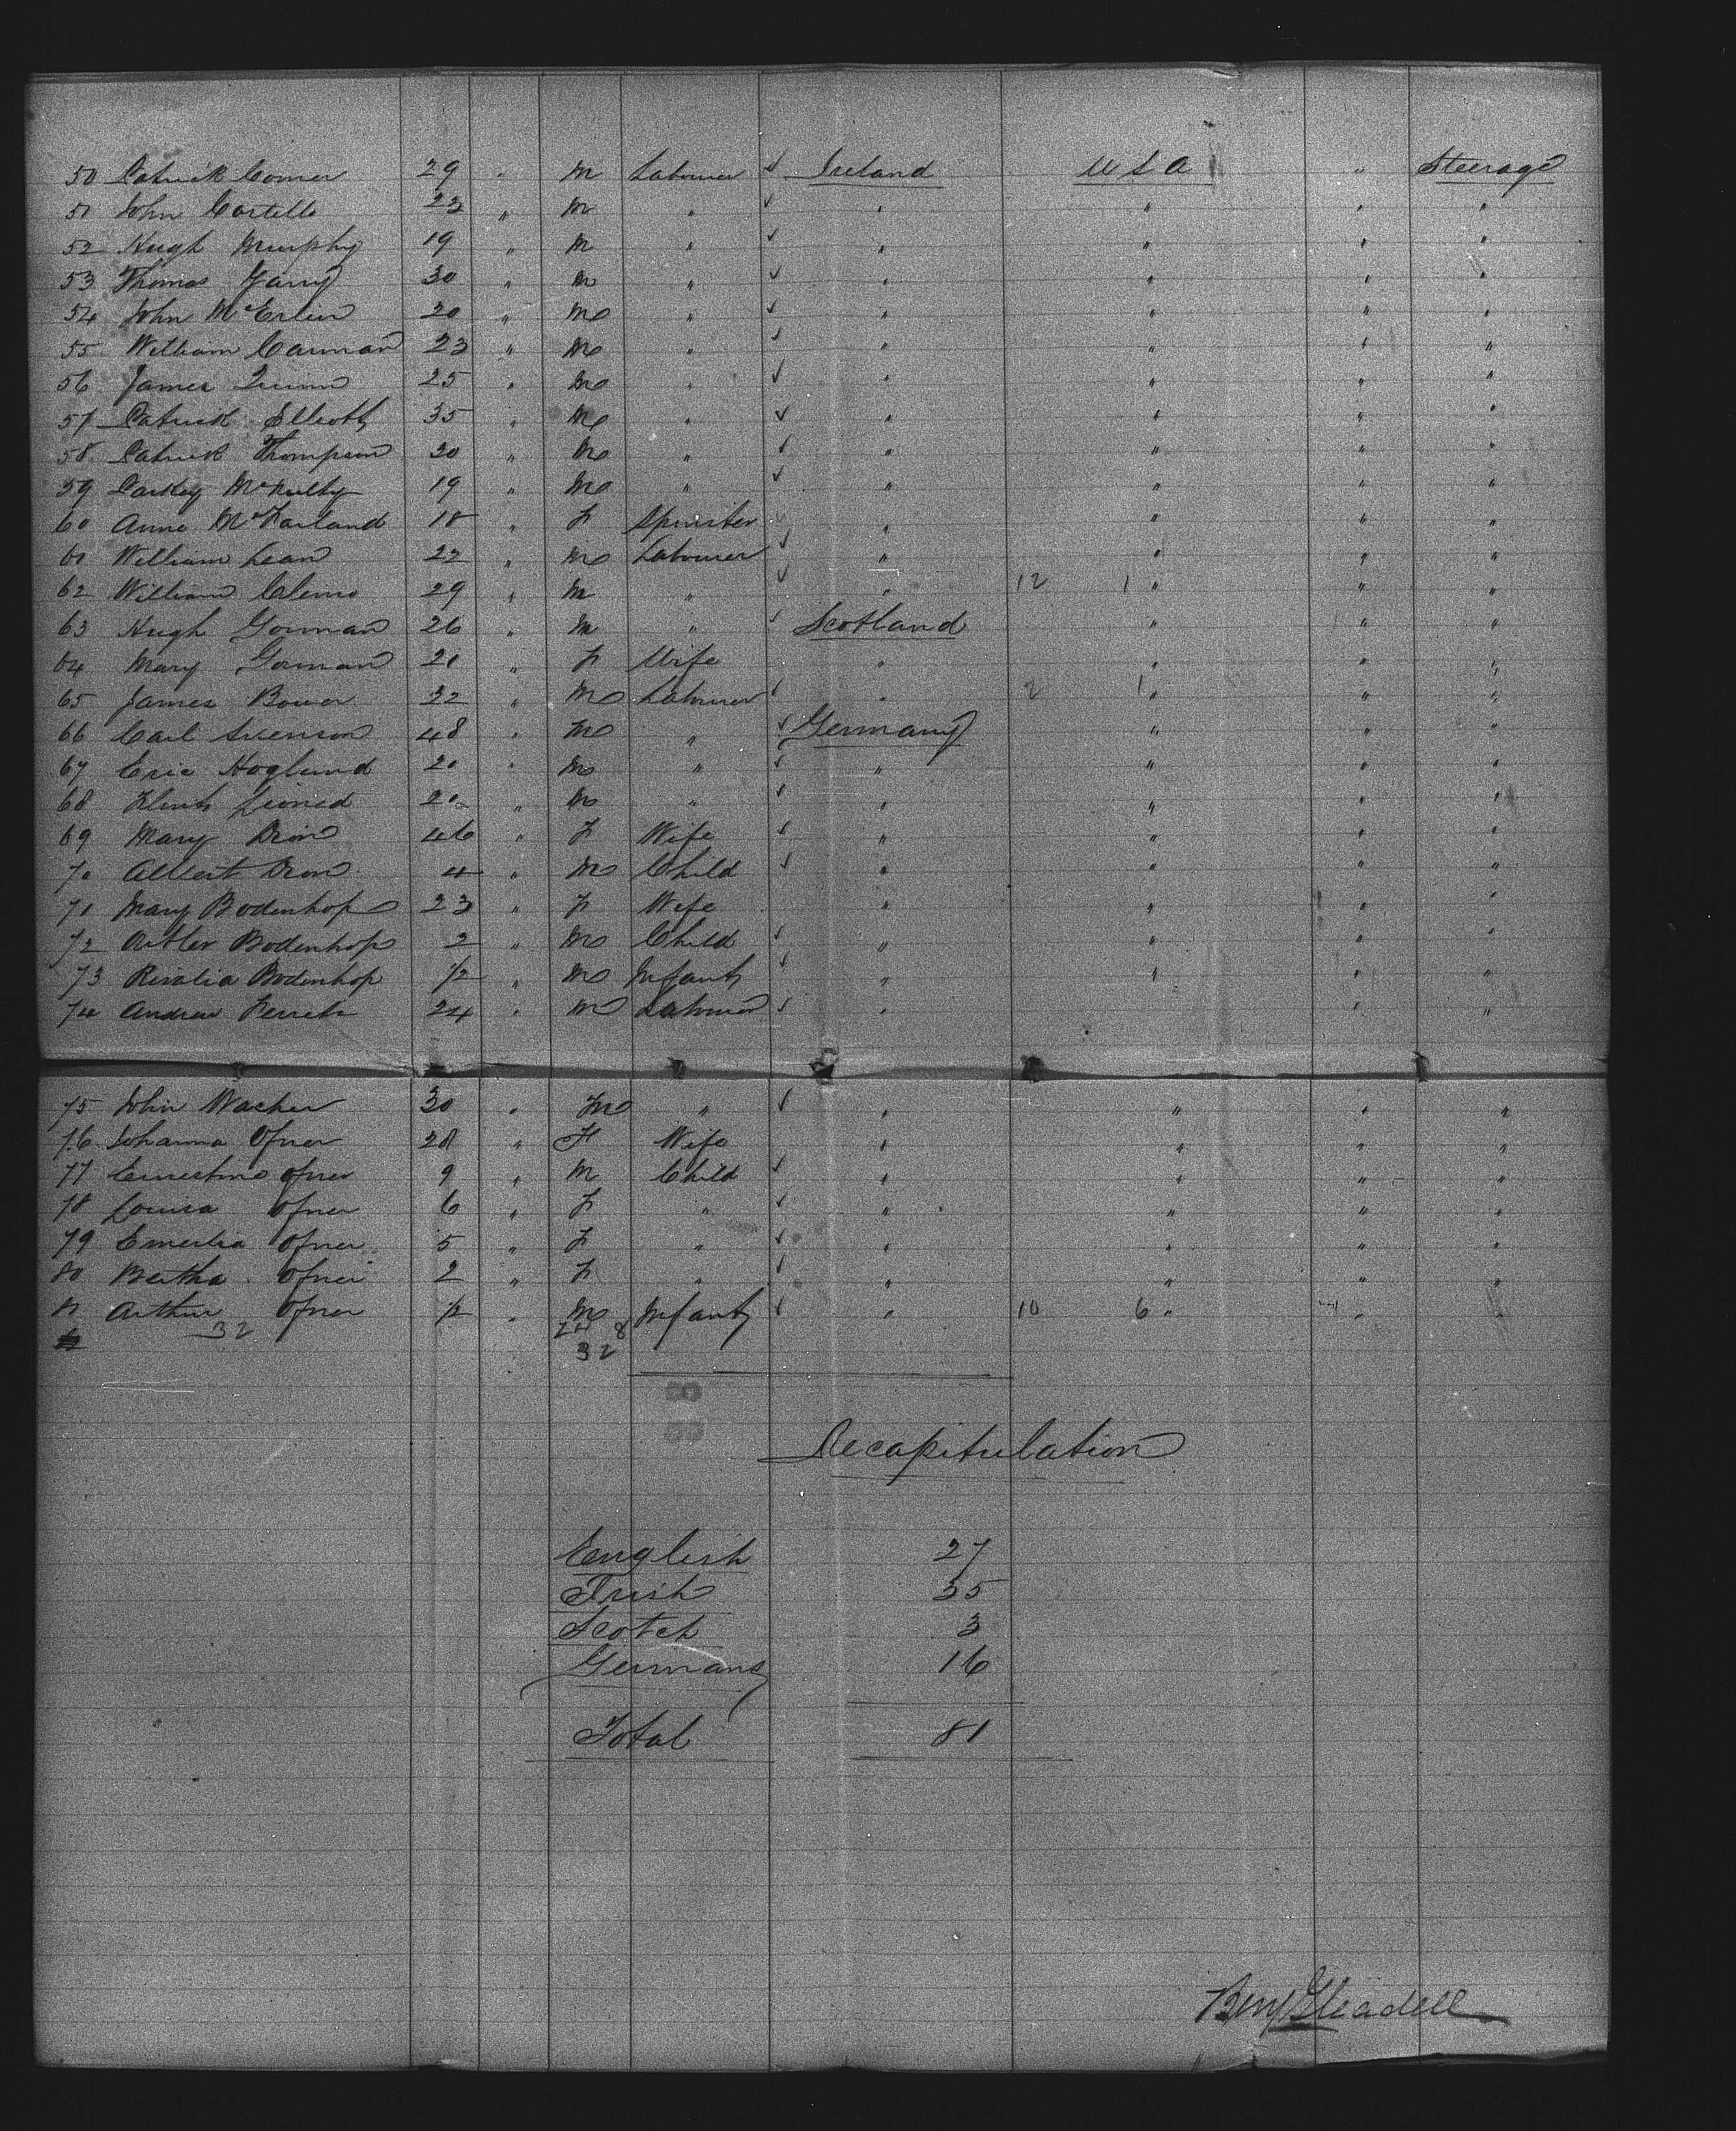 50 Patrick Comer 29 " M Labourer ✓ Ireland U S A " Steerage
51 John Costello 23 " M " ✓ " " " "
52 Hugh Murphy 19 " M " ✓ " " " "
53 Thomas 30 " M " ✓ " " " "
54 John McErlien 20 " M " ✓ " " " "
55 William Cannan 23 " M " ✓ " " " "
56 James Quinn 25 " M " ✓ " " " "
57 Patrick Elliott 35 " M " ✓ " " " "
58 Patrick Thompson 20 " M " ✓ " " " "
59 McNulty 19 " M " ✓ " " " "
60 Anne McFarland 18 " F Spinster ✓ " " " "
61 William Lean 22 " M Labourer ✓ " " " "
62 William Climo 29 " M " ✓ " 12 1 " " "
63 Hugh Gorman 26 " M " ✓ Scotland " " "
64 Mary Gorman 21 " F Wife " " " "
65 James Bower 22 " M Labourer ✓ " 2 1 " " "
66 Carl Swenson 48 " M " ✓ Germany " " "
67 Eric Hoglund 20 " M " ✓ " " " "
68 " M " ✓ " " " "
69 Mary Dron 46 " F Wife ✓ " " " "
70 Albert Dron 4 " M Child ✓ " " " "
71 Mary Bodenhop 23 " F Wife " " " "
72 Bodenhop 2 " M Child ✓ " " " "
73 Bodenhop 1/2 " M Infant ✓ " " " "
74 Andrew 24 " M Labourer ✓ " " "
75 John Wacher 30 " M " ✓ " " " "
76 Johanna Ofner 28 " F Wife " " " "
77 Ernestine Ofner 9 " M Child ✓ " " " "
78 Louisa Ofner 6 " F " ✓ " " " "
79 Emerlia Ofner 5 " F " ✓ " " " "
80 Bertha Ofner 2 " F " ✓ " " " "
81 Arthur Ofner 1/2 " M Infant ✓ " 10 6 " "
32 24 8
32
Recapitulation
English 27
Irish 35
Scotch 3
Germans 16
Total 81
Benj Gleadell